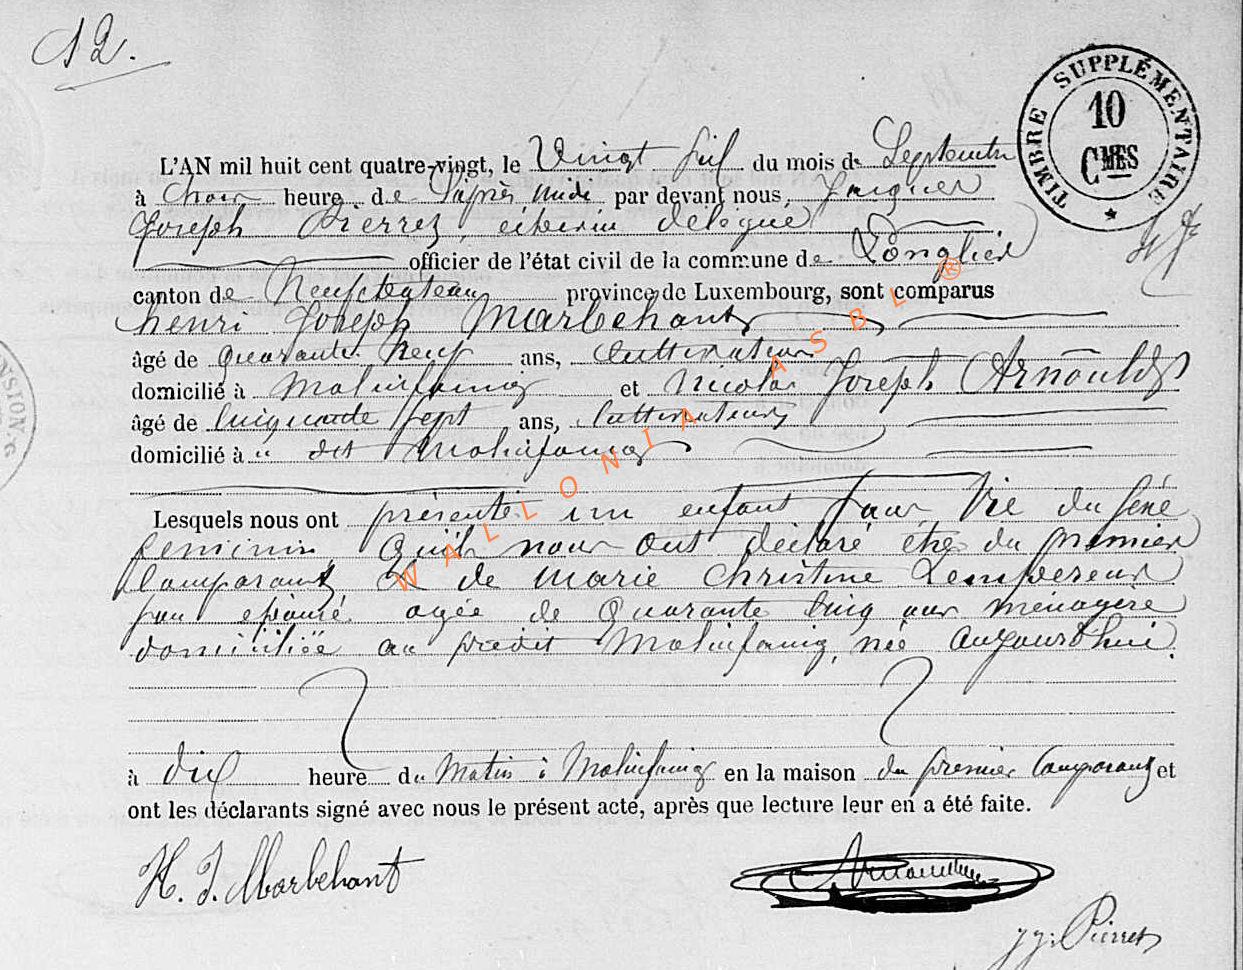 12.
TIMBRE SUPPLÉMENTAIRE
10
CMES
L'AN mil huit cent quatre-vingt, le Vingt six du mois de Septembre
à trois heure de l'après midi par devant nous, Jacques
Joseph Pierret, échevin délégué
officier de l'état civil de la commune de Longlier
canton de Neufchateau province de Luxembourg, sont comparus
henri Joseph Marbehant
âgé de quarante neuf ans, Cultivateur
domicilié à Molinfaing et Nicolas Joseph Arnould
âgé de Cinquante sept ans, Cultivateur
domicilié à " dit Molinfaing
Lesquels nous ont présenté un enfant sans Vie du sexe
feminin Qu'ils nous ont déclaré être du premier
Comparant & de Marie Christine Lempereur
son épouse agée de Quarante Cinq ans ménagere
domiciliée au predit Molinfaing, née aujourd'hui.
à dix heure du Matin à Molinfaing en la maison du premier Comparant et
ont les déclarants signé avec nous le présent acte, après que lecture leur en a été faite.
H. J. Marbehant
Arnould
JJ: Pierret
WALLONIA ASBL ®